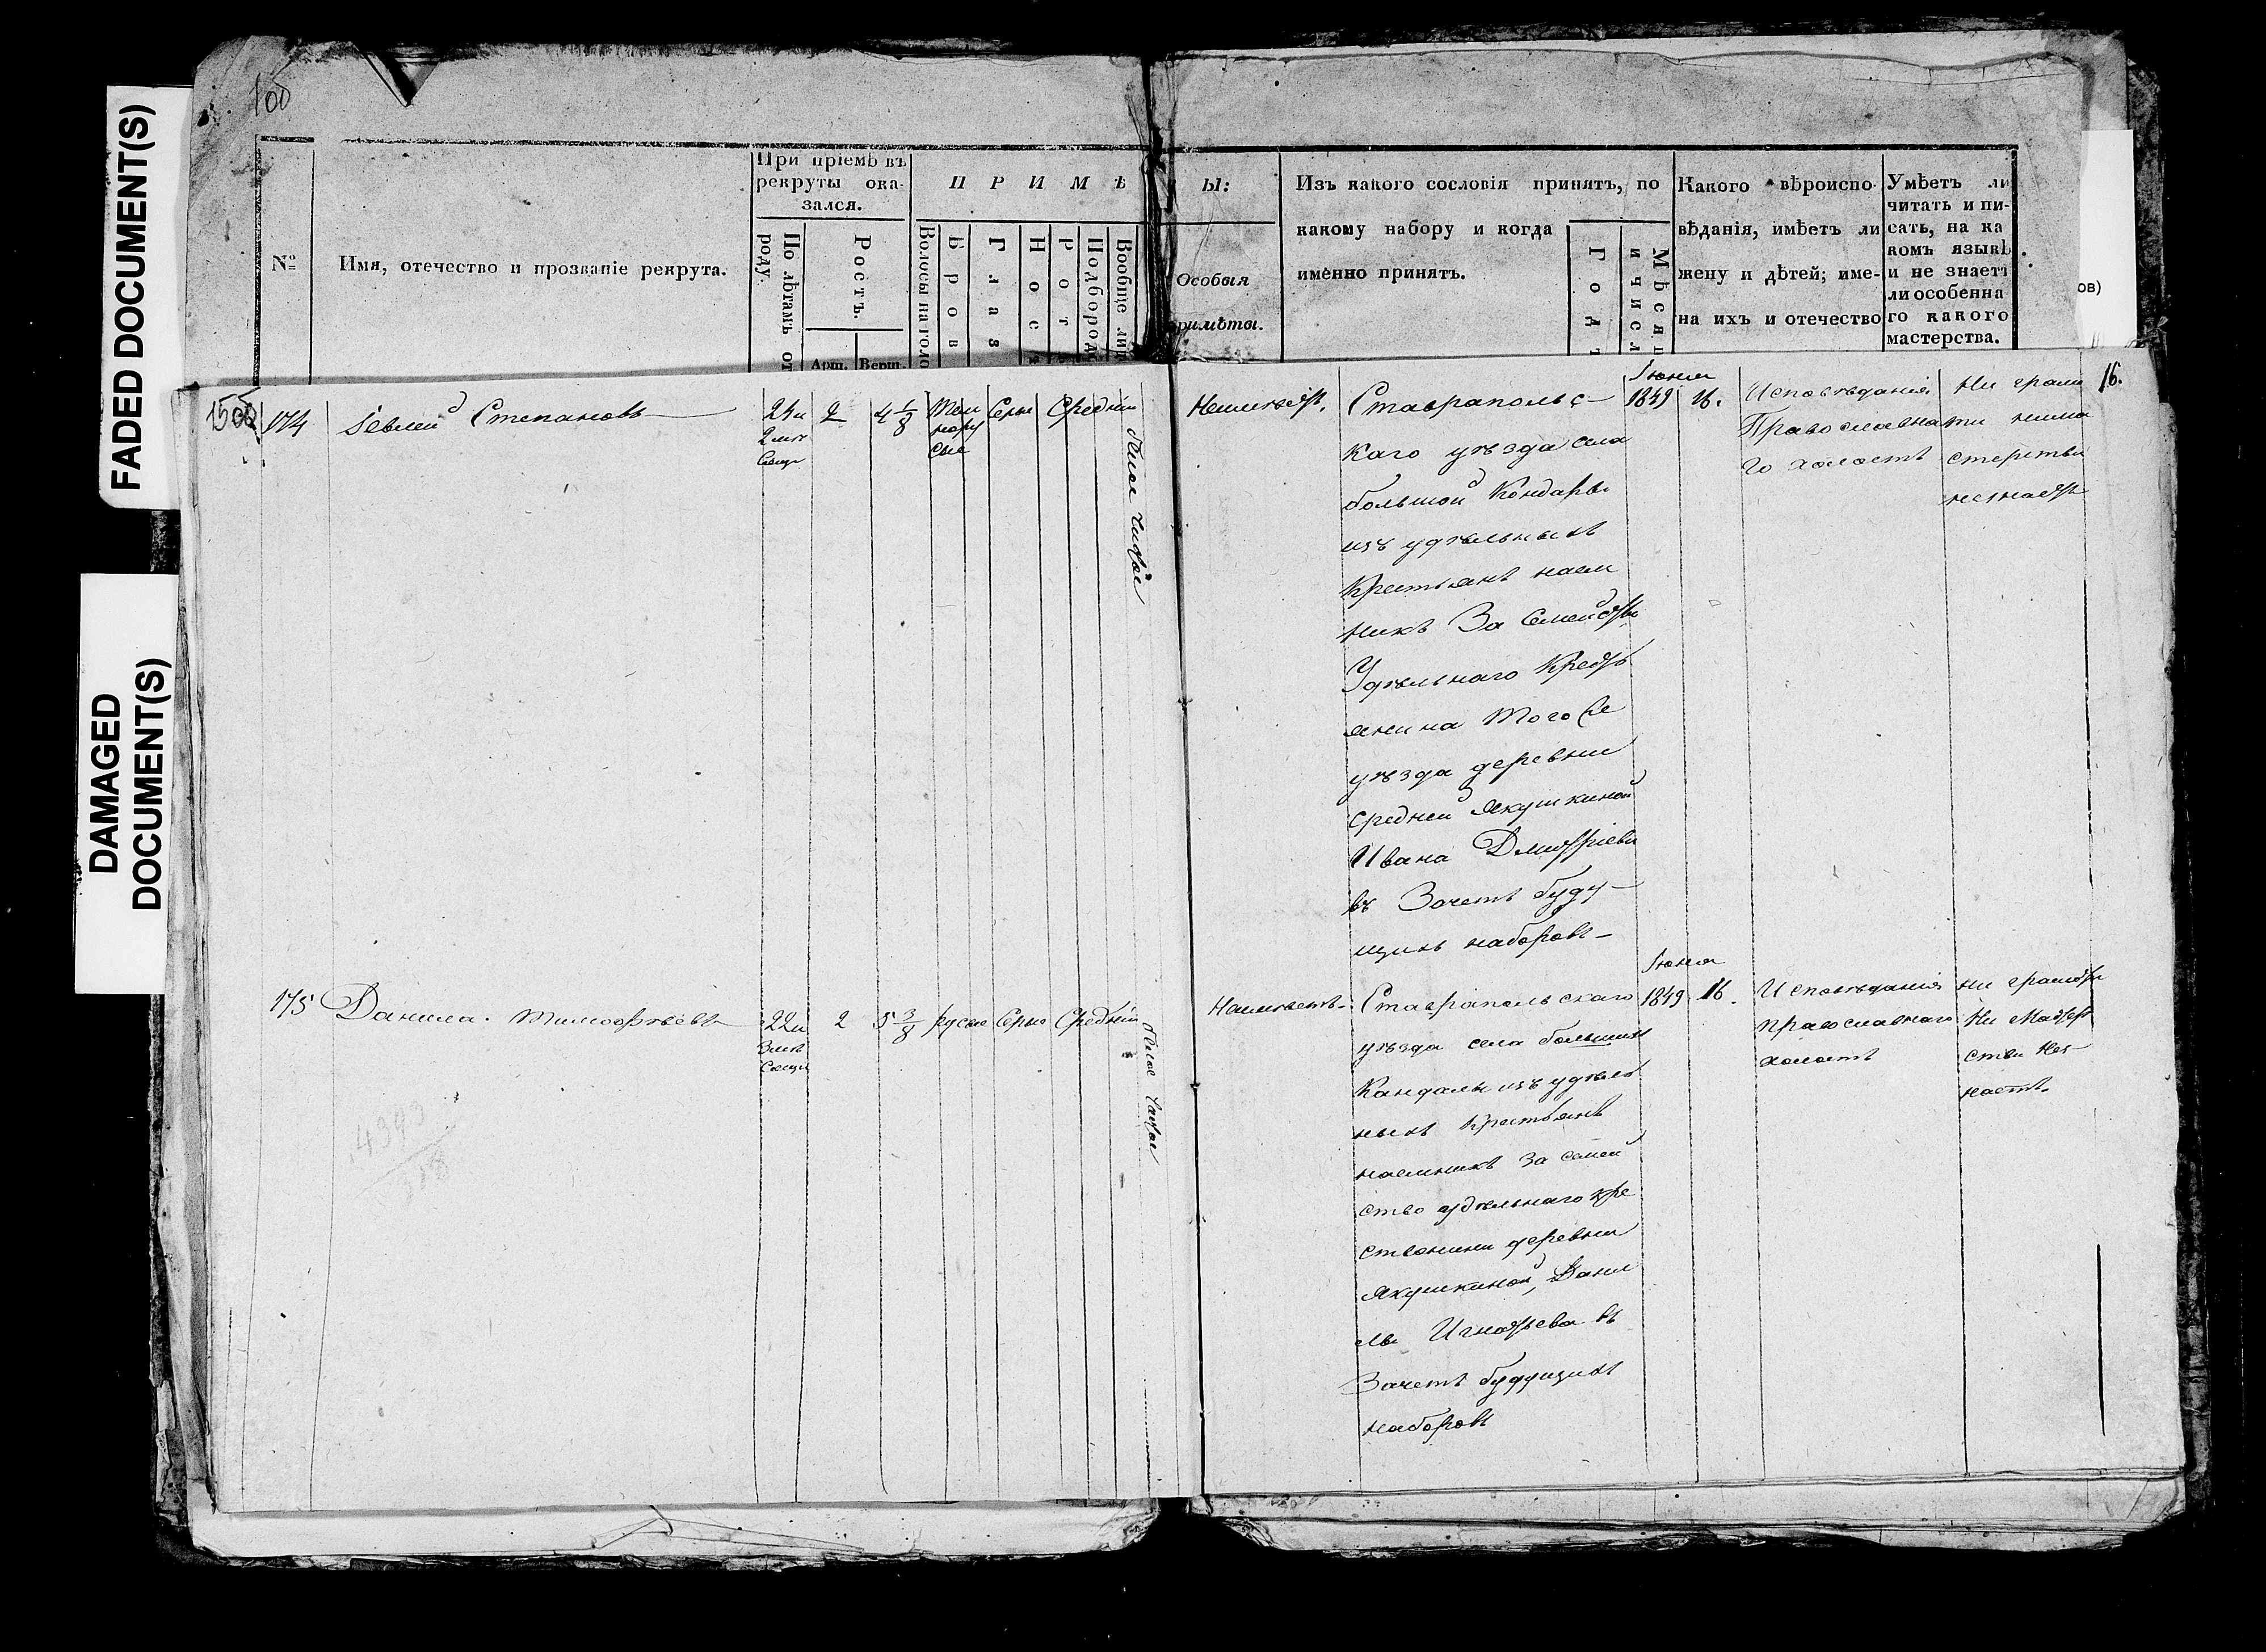 FADED DOCUMENT(S)
DAMAGED
DOCUMENT(S)
100
№
Имя, отечество и прозваніе рекрута.
При пріемѣ въ
рекруты ока-
зался.
По лѣтамъ от
роду.
Ростъ.
Арш.
Верш.
ПРИМѢ
Волосы на голо
Бров
Глаз
Носъ
Ротъ
Подбородо
Вообще ли
Ы:
Особыя
римѣты.
Изъ какого сословія принятъ, по
какому набору и когда
именно принятъ.
Год
Мѣсяц
и числ
Какого вѣроиспо-
вѣданія, имѣетъ ли
жену и дѣтей; име-
на ихъ и отечество
Умѣетъ ли
читать и пи-
сать, на ка
комъ языкѣ
и не знаетъ
ли особенна
го какого
мастерства.
ов)
174
Іевлей Степановъ
2
4 1/8
Тем
нору
сые
Серые
Средній
Неимѣетъ.
Ставрапольс-
каго уѣзда села
большой Кондары
изъ удѣльныхъ
Крестьянъ наем
никъ За Семейство
Удѣльнаго Кресть
янина Того же
уѣзда деревни
Средней Якушкиной
Ивана Дмитріева
въ Зачетъ буду-
щихъ наборовъ-
Іюня
1849
16.
Исповѣданія
Православна
го холостъ
Ни грамо
ти нима
стерства
незнаетъ
16.
175
Данила Тимофѣевъ
2
5 3/8
русые
Серые
Средній
Неимѣетъ.
Ставрапольскаго
уѣзда села большихъ
Кандалы изъ удѣль
ныхъ крестьянъ
наемникъ за семей
ство удѣльнаго кре
стьянина деревни
Якушкиной, Дани
лы Игнатьева въ
Зачетъ будущихъ
наборовъ
Іюня
1849
16.
Исповѣданія
православнаго
холостъ
Ни грамоты
Ни Матер
ства Нез
наетъ.